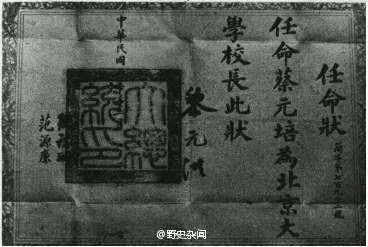 任命狀
任命蔡元培為北京大
學校長此狀
黎元洪
大總統印
中華民國
范源廉
@野史杂闻